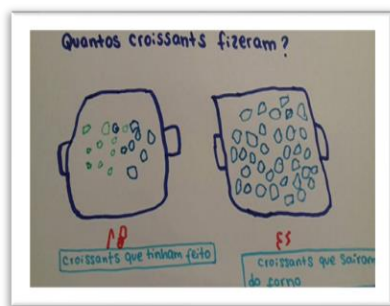 Quantos croissants fizeram?
Croissants que tinham feito
Croissants que sairam
do forno